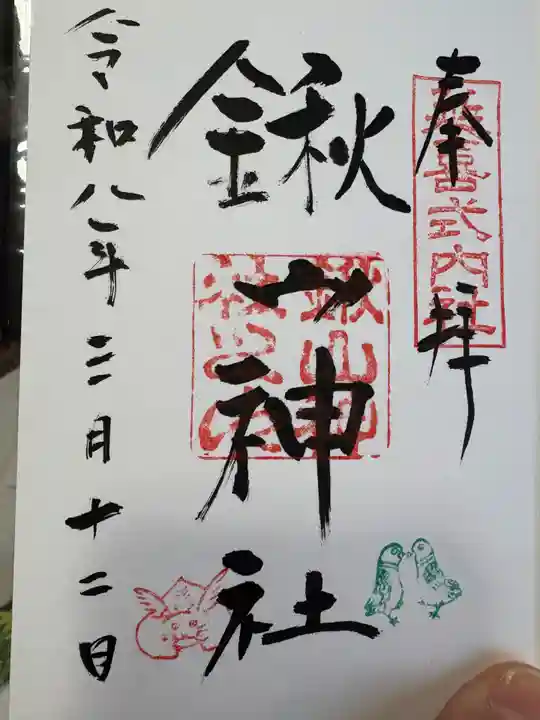 奉拝
延喜式内社
鍬山神社
令和八年三月十二日